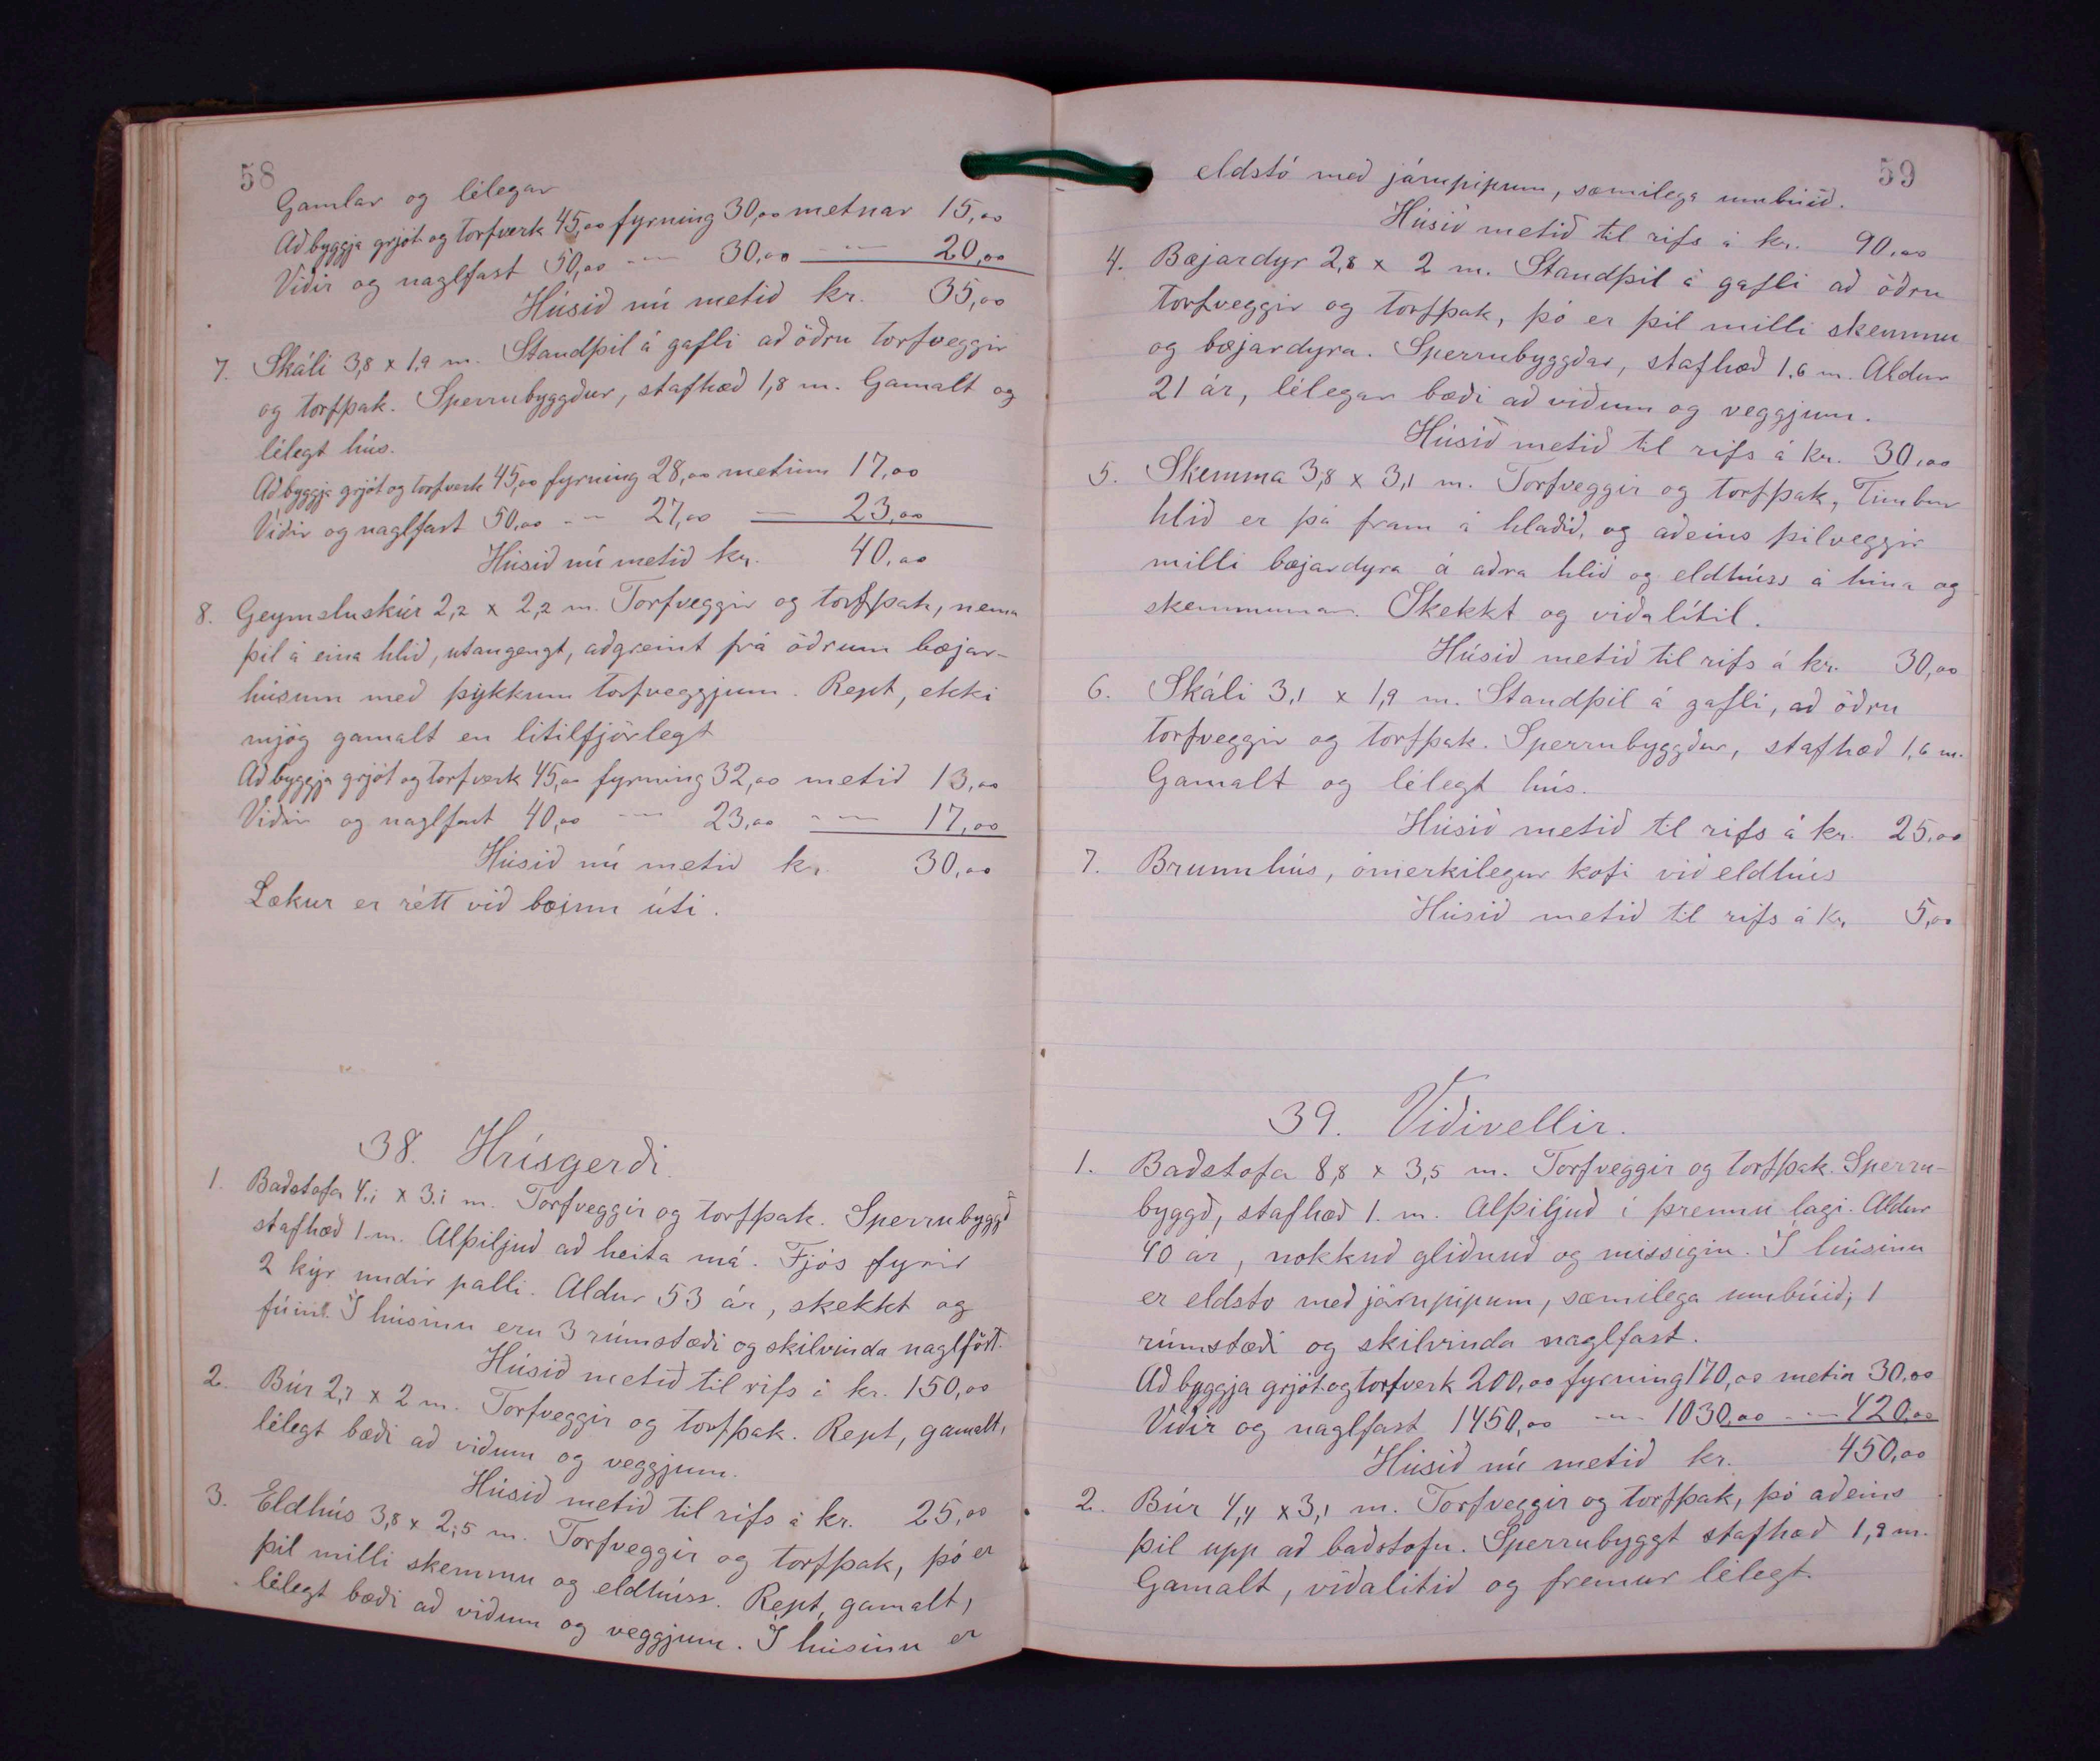 58
Gamlar og lélegar
Að byggja grjót og torfverk 45,00 fyrning 30,00 metnar 15,00
Viðir og naglfast 50,00 -"- 30,00 -"- 20,00
Húsið nú metið kr. 35,00
7. Skáli 3,8 x 1,9 m. Standþil á gafli að öðru torfveggir
og torfþak. Sperrubyggður, stafhæð 1,8 m. Gamalt og
lélegt hús.
Að byggja grjót og torfverk 45,00 fyrning 28,00 metinn 17,00
Viðir og naglfast 50,00 -"- 27,00 — 23,00
Húsið nú metið kr. 40,00
8. Geymsluskúr 2,2 x 2,2 m. Torfveggir og torfþak, nema
þil á eina hlið, utangengt, aðgreint frá öðrum bæjar-
húsum með þykkum torfveggjum. Rept, ekki
mjög gamalt en lítilfjörlegt
Að byggja grjót og torfverk 45,00 fyrning 32,00 metið 13,00
Viðir og naglfast 40,00 -"- 23,00 -"- 17,00
Húsið nú metið kr. 30,00
Lækur er rétt við bæinn úti.
38. Hrísgerði.
1. Baðstofa 4,1 x 3,1 m. Torfveggir og torfþak. Sperrubyggð
stafhæð 1 m. Alþiljuð að heita má. Fjós fyrir
2 kýr undir palli. Aldur 53 ár, skekkt og
fúin. Í húsinu eru 3 rúmstæði og skilvinda naglföst.
Húsið metið til rifs á kr. 150,00
2. Búr 2,7 x 2 m. Torfveggir og torfþak. Rept, gamalt,
lélegt bæði að viðum og veggjum.
Húsið metið til rifs á kr. 25,00
3. Eldhús 3,8 x 2,5 m. Torfveggir og torfþak, þó er
þil milli skemmu og eldhúss. Rept, gamalt,
lélegt bæði að viðum og veggjum. Í húsinu er
59
eldstó með járnpipum, sæmilega umbúið.
Húsið metið til rifs á kr. 90,00
4. Bæjardyr 2,8 x 2 m. Standþil á gafli að öðru
torfveggir og torfþak, þó er þil milli skemmu
og bæjardyra. Sperrubyggðar, stafhæð 1,6 m. Aldur
21 ár, lélegar bæði að viðum og veggjum.
Húsið metið til rifs á kr. 30,00
5. Skemma 3,8 x 3,1 m. Torfveggir og torfþak, Timbur
hlið er þá fram á hlaðið, og aðeins þilveggir
milli bæjardyra á aðra hlið og eldhúss á hina og
skemmunnar. Skekkt og viðalítil.
Húsið metið til rifs á kr. 30,00
6. Skáli 3,1 x 1,9 m. Standþil á gafli, að öðru
torfveggir og torfþak. Sperrubyggður, stafhæð 1,6 m.
Gamalt og lélegt hús.
Húsið metið til rifs á kr. 25,00
7. Brunnhús, ómerkilegur kofi við eldhús
Húsið metið til rifs á kr. 5,00
39. Viðivellir.
1. Baðstofa 8,8 x 3,5 m. Torfveggir og torfþak. Sperru-
byggð, stafhæð 1. m. Alþiljuð í þrennu lagi. Aldur
40 ár, nokkuð gliðnuð og missigin. Í húsinu
er eldstó með járnpipum, sæmilega umbúið, 1
rúmstæði og skilvinda naglfast.
Að byggja grjót og torfverk 200,00 fyrning 170,00 metin 30,00
Viðir og naglfast 1450,00 -"- 1030,00 -"- 420,00
Húsið nú metið kr. 450,00
2. Búr 4,4 x 3,1 m. Torfveggir og torfþak, þó aðeins
þil upp að baðstofu. Sperrubyggt stafhæð 1,9 m.
Gamalt, viðalitið og fremur lélegt.